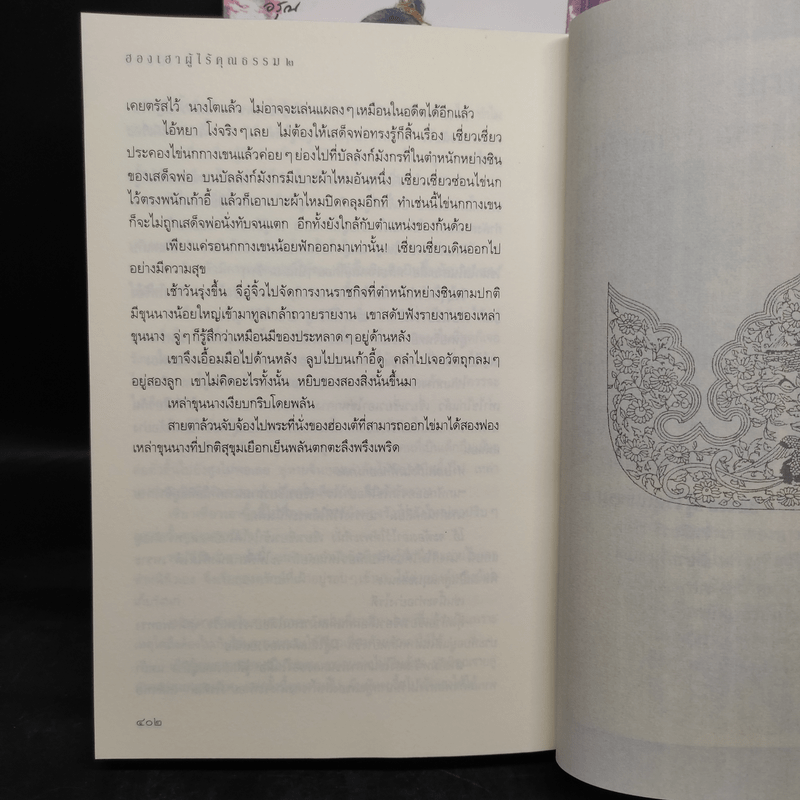 อรุณ
ฮองเฮาผู้ไร้คุณธรรม ๒
เคยตรัสไว้ นางโตแล้ว ไม่อาจจะเล่นแผลงๆ เหมือนในอดีตได้อีกแล้ว
ไอ้หยา โง่จริงๆ เลย ไม่ต้องให้เสด็จพ่อทรงรู้ก็สิ้นเรื่อง เซี่ยวเซี่ยว
ประคองไข่นกกางเขนแล้วค่อยๆ ย่องไปที่บัลลังก์มังกรที่ในตำหนักหย่างซิน
ของเสด็จพ่อ บนบัลลังก์มังกรมีเบาะผ้าไหมอันหนึ่ง เซี่ยวเซี่ยวซ่อนไข่นก
ไว้ตรงพนักเก้าอี้ แล้วก็เอาเบาะผ้าไหมปิดคลุมอีกที ทำเช่นนี้ไข่นกกางเขน
ก็จะไม่ถูกเสด็จพ่อนั่งทับจนแตก อีกทั้งยังใกล้กับตำแหน่งของก้นด้วย
เพียงแค่รอนกกางเขนน้อยฟักออกมาเท่านั้น! เซี่ยวเซี่ยวเดินออกไป
อย่างมีความสุข
เช้าวันรุ่งขึ้น จี่อู๋จิ้วไปจัดการงานราชกิจที่ตำหนักหย่างซินตามปกติ
มีขุนนางน้อยใหญ่เข้ามาทูลเกล้าถวายรายงาน เขาสดับฟังรายงานของเหล่า
ขุนนาง จู่ๆ ก็รู้สึกว่าเหมือนมีของประหลาดๆ อยู่ด้านหลัง
เขาจึงเอื้อมมือไปด้านหลัง ลูบไปบนเก้าอี้ดู คลำไปเจอวัตถุกลมๆ
อยู่สองลูก เขาไม่คิดอะไรทั้งนั้น หยิบของสองสิ่งนั้นขึ้นมา
เหล่าขุนนางเงียบกริบโดยพลัน
สายตาล้วนจับจ้องไปพระที่นั่งของฮ่องเต้ที่สามารถออกไข่มาได้สองฟอง
เหล่าขุนนางที่ปกติสุขุมเยือกเย็นพลันตกตะลึงพรึงเพริด
๔๐๒